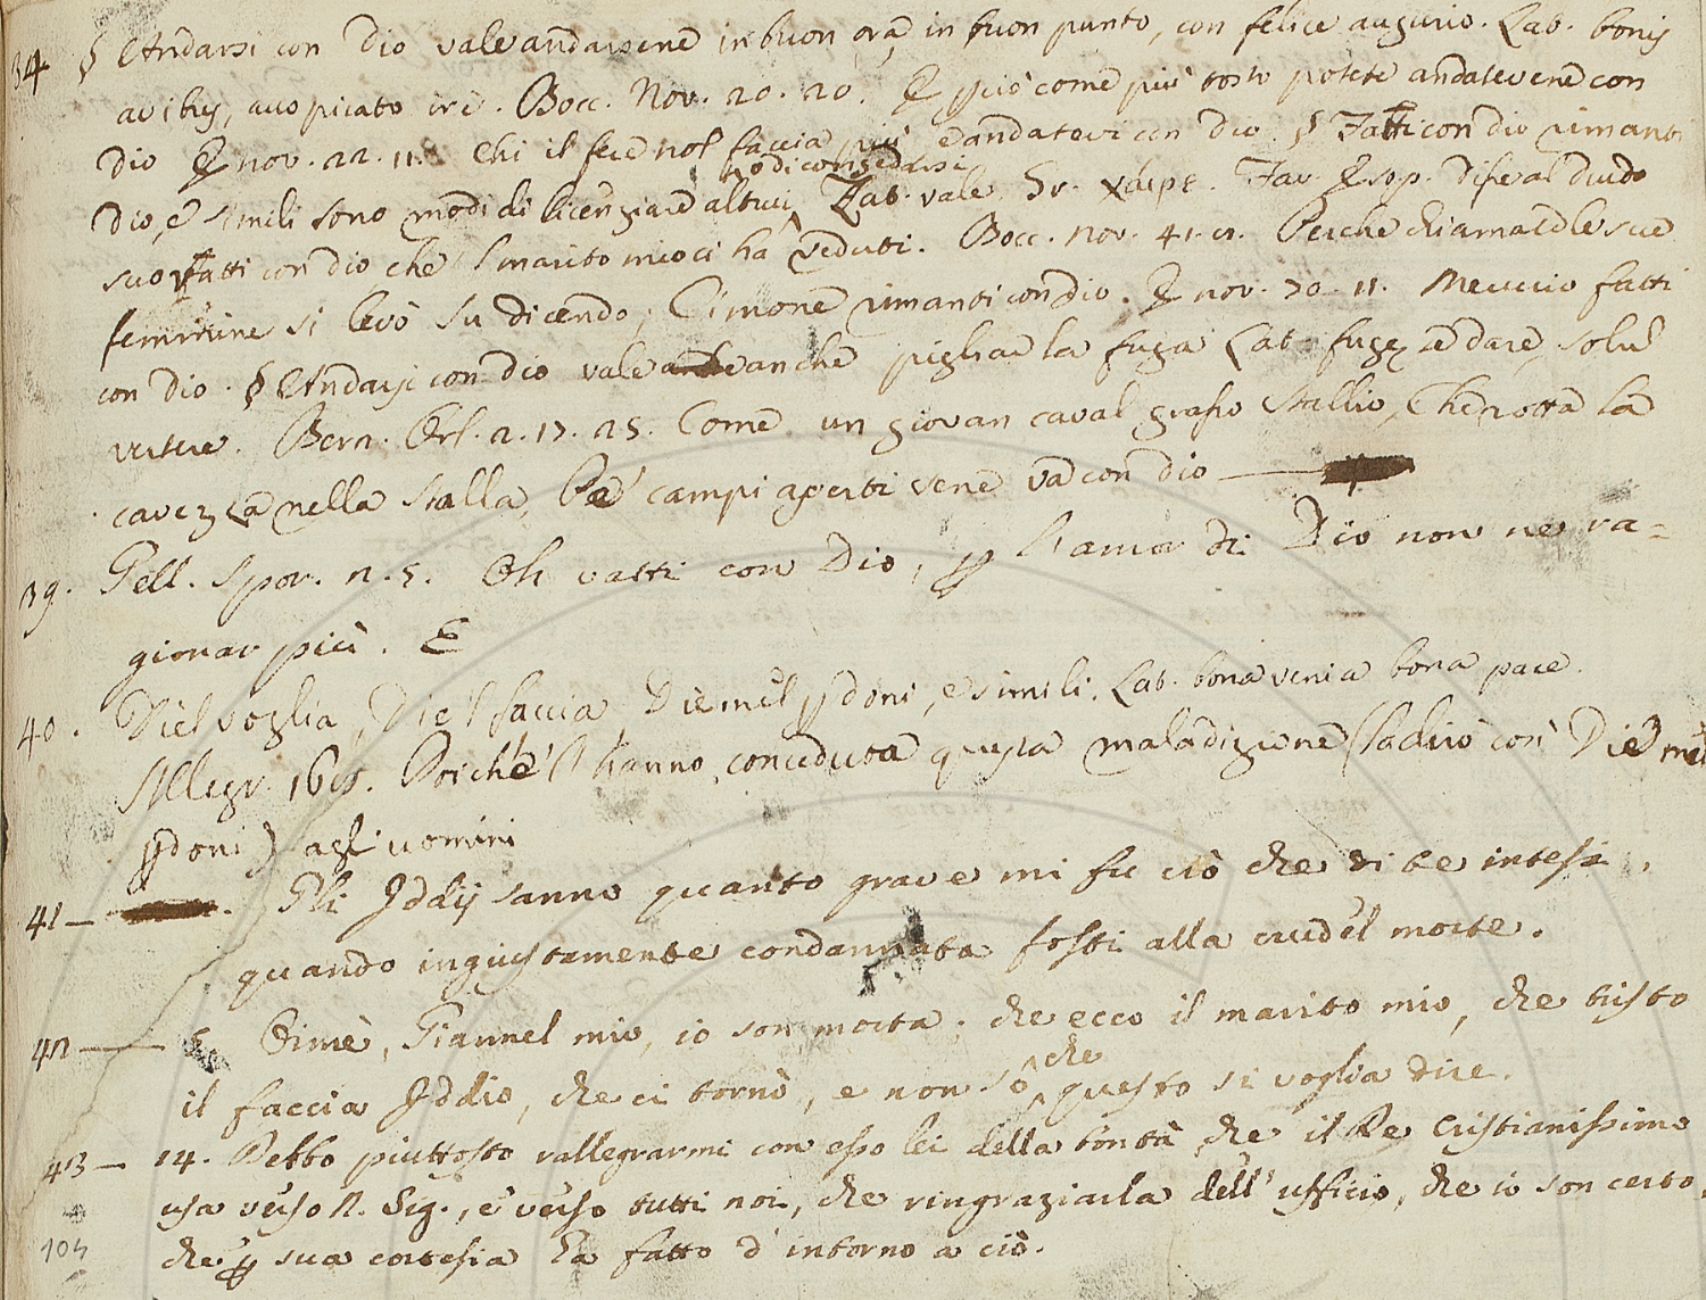 34 § Andarsi con Dio vale andarsene in buon ora, in buon punto, con felice augurio. Lat. bonis
avibus, auspicato ire. Bocc. Nov. 20. 20. E però come più tosto potete andatevene con
Dio E nov. 22. 11. Chi il fece nol faccia più e andatevi con Dio. § Fatti con dio rimanti
o di congedarsi
Dio, e simili sono modi di licenziare altrui Lat. vale Gr. χαιρε. Fav. Esop. Disse al drudo
suo fatti con dio, che 'l marito mio ci ha veduti. Bocc. nov. 41. Perche chiamate le sue
femmine si levò su dicendo; Cimone rimanti con dio. E nov. 70. 11. Meuccio fatti
con Dio. § Andarsi con dio vale anche pigliar la fuga Lat. fugę se dare, solum
vertere. Bern. Orl. 2. 17. 25. Come un giovan caval grasso stallio, Che rotta la
cavezza nella stalla, Pe' campi aperti sene va con dio
39. Gell. Spor. n. 5. Oh vatti con Dio, ꝑ l'amor di Dio non ne ra=
gionar più. E
40. Diel voglia, Die 'l faccia Diemel ꝑdoni, e simili. Lat. bona venia bona pace.
Allegr. 169. Poichè l'hanno conceduta questa maladizione (la dirò così Die mel
ꝑdoni) agli uomini
41 — . Gli Iddij sanno quanto grave mi fu ciò che di te intesi,
quando ingiustamente condannata fosti alla crudel morte.
42 — 5. Oimè, Giannel mio, io son morta: che ecco il marito mio, che tristo
che
il faccia Iddio, che ci tornò, e non so questo si voglia dire.
43 — 14. Debbo piuttosto rallegrarmi con esso lei della bontà, che il Re Cristianissimo
usa verso N. Sig., e verso tutti noi, che ringraziarla dell' ufficio, che io son certo,
che ꝑ sua cortesia ha fatto d' intorno a ciò.
104